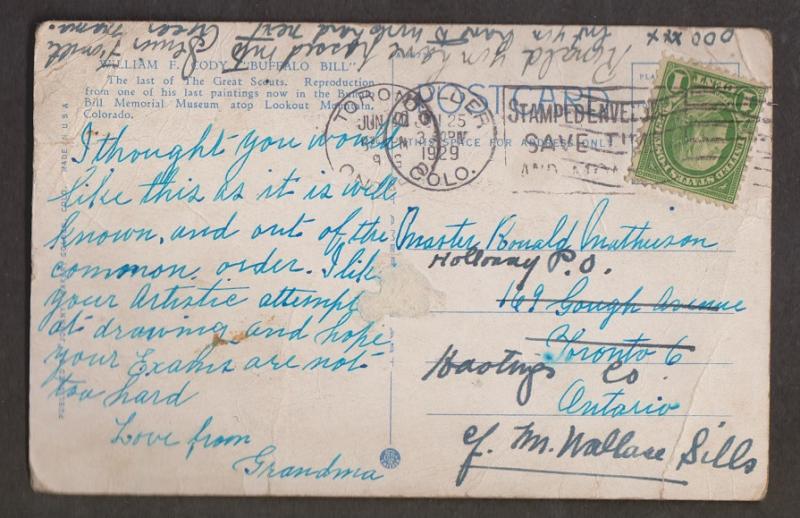 WILLIAM F. CODY, "BUFFALO BILL"
The last of The Great Scouts. Reproduction
from one of his last paintings now in the Buffalo
Bill Memorial Museum atop Lookout Mountain,
Colorado.
I thought you would
like this as it is well
known, and out of the
common order. I like
your Artistic attempt
at drawing and hope
your Exams are not
too hard
Love from
Grandma
Ronald you have passed into
Senior fourth
but you have to work hard next
year. mama.
OOO XXX
POST CARD
THIS SPACE FOR ADDRESS ONLY
TORONTO
JUN
ONT
BOULDER
JUN 25
3 30PM
1929
COLO.
STAMPED ENVELOPES
SAVE TIME
AND MONEY
UNITED STATES POSTAGE
1 CENT 1
Master Ronald Mathieson
Holloway P.O.
169 Gough Avenue
Toronto 6
Hastings Co
Ontario
c/. M. Wallace Sills
MADE IN U.S.A.